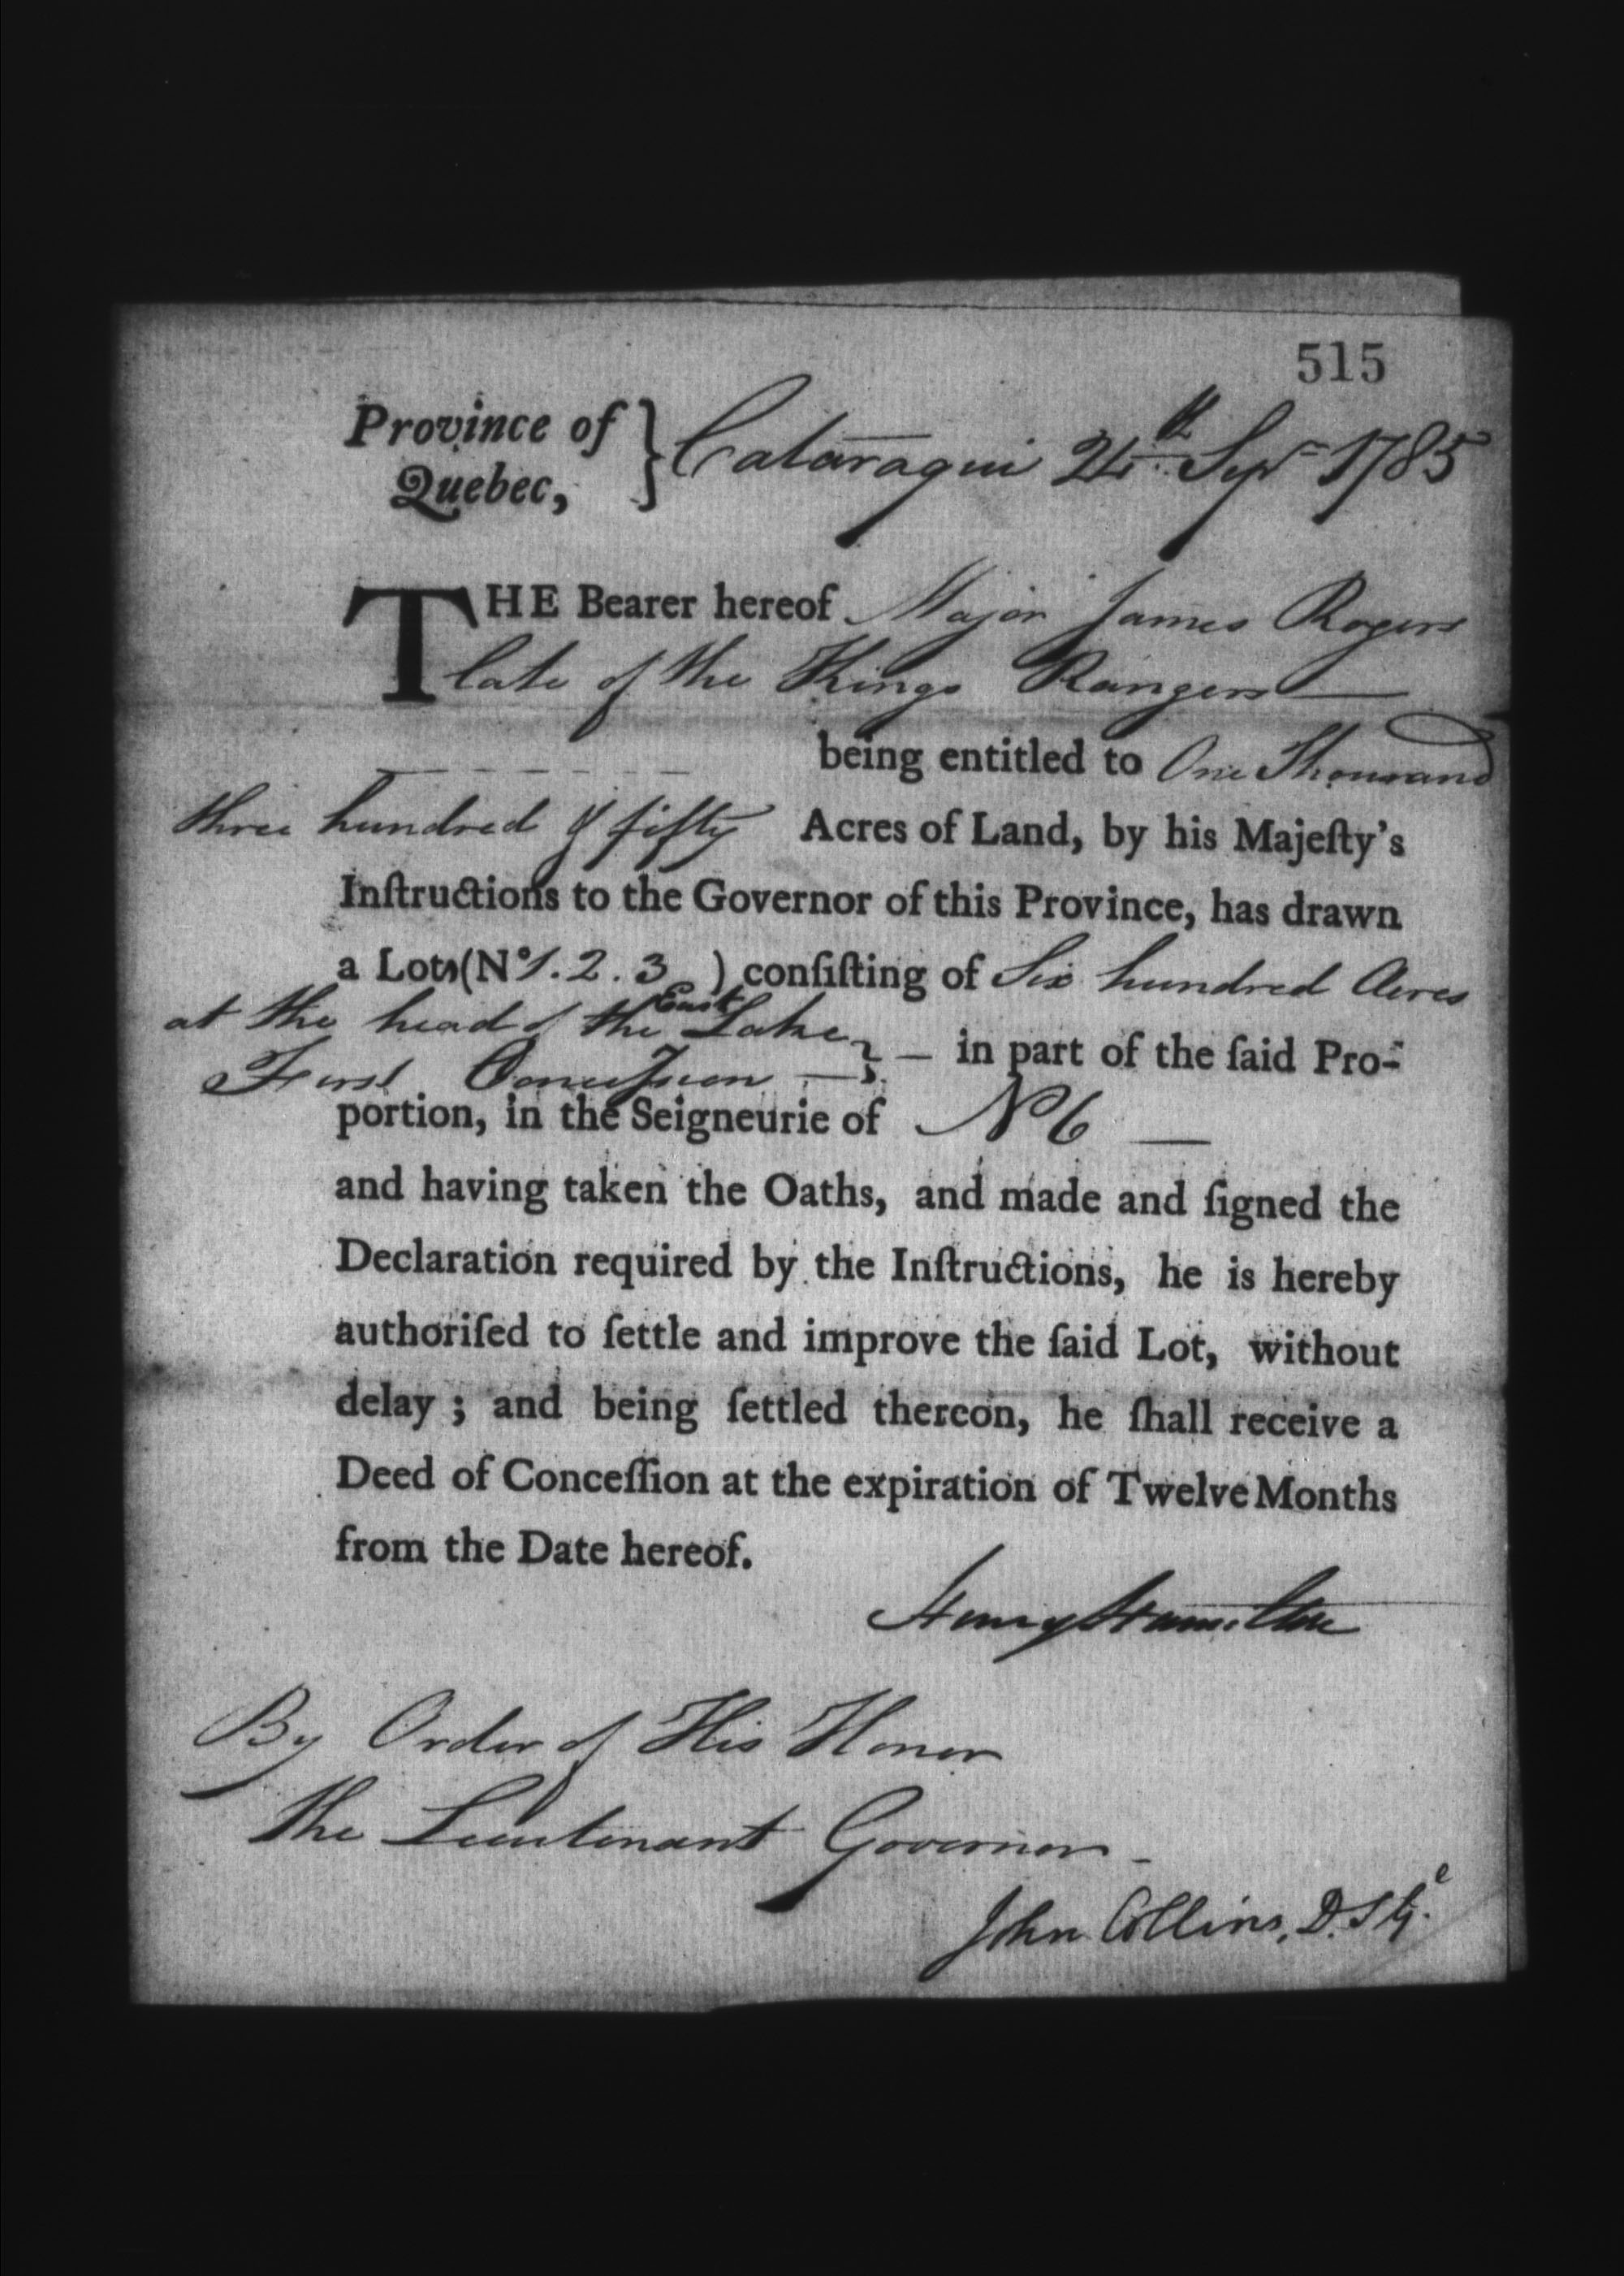 515
Province of Quebec, } Cataraqui 24th Sepr 1785
THE Bearer hereof Major James Rogers
late of the Kings Rangers
being entitled to One Thousand
three hundred & fifty Acres of Land, by his Majeſty's
Inſtructions to the Governor of this Province, has drawn
a Lots (No 1. 2. 3 ) conſiſting of Six hundred Acres
at the head of the East Lake
First Conceſsion } — in part of the ſaid Pro-
portion, in the Seigneurie of No 6 —
and having taken the Oaths, and made and ſigned the
Declaration required by the Inſtructions, he is hereby
authoriſed to ſettle and improve the ſaid Lot, without
delay ; and being ſettled thereon, he ſhall receive a
Deed of Conceſſion at the expiration of Twelve Months
from the Date hereof.
Henry Hamilton
By Order of His Honor
the Lieutenant Governor
John Collins, D. S. G.